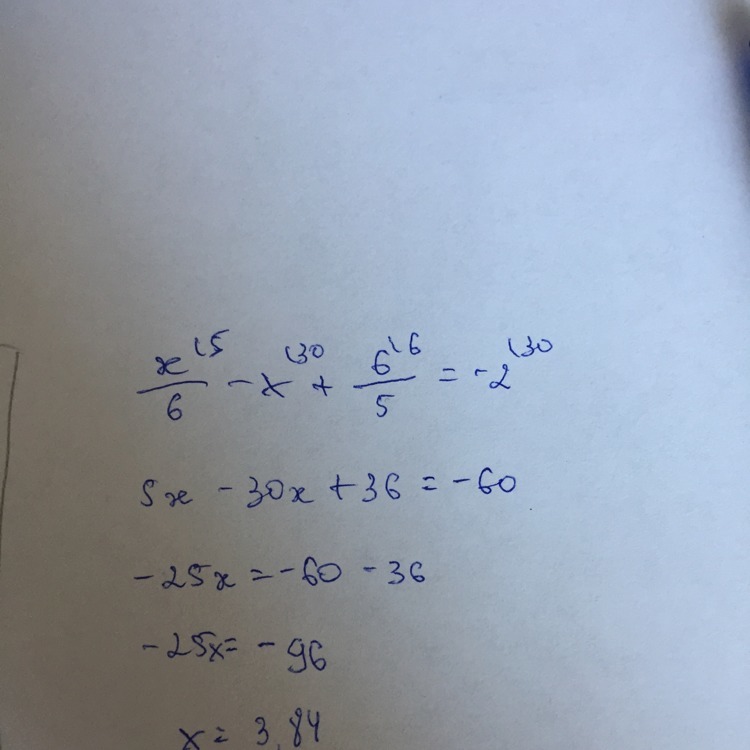 x⁽⁵/6 - x⁽³⁰ + 6⁽⁶/5 = -2⁽³⁰
5x - 30x + 36 = -60
-25x = -60 - 36
-25x = -96
x = 3,84